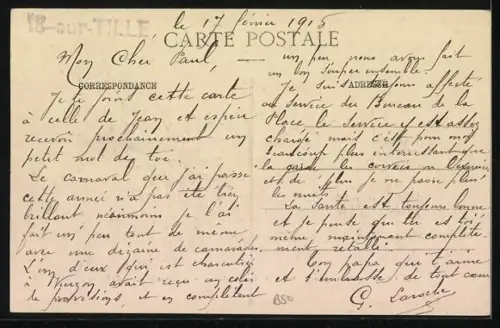 IS-sur-TILLE
le 17 février 1915
CARTE POSTALE
CORRESPONDANCE
ADRESSE
Mon Cher Paul,
Je te joint cette carte
à celle de Jean et espère
recevoir prochainement un
petit mot de toi.
Le carnaval que j'ai passé
cette année n'a pas été bien
brillant néanmoins je l'ai
fait un peu tout de même
avec une dizaine de camarades
L'un d'eux qui est charcutier
à avait reçu un colis
de provisions, et en complétant
un peu nous avons fait
un bon souper ensemble.
Je suis affecté
au Service du Bureau de la
Place le Service est assez
chargé mais c'est pour moi
beaucoup plus intéressant que
la garde les corvées
et de plus je ne passe plus
les nuits.
La Santé est toujours bonne
et je pense que tu es toi
même maintenant complète-
ment rétabli.
Ton papa qui t'aime
et t'embrasse de tout cœur
G. Laroche
B50